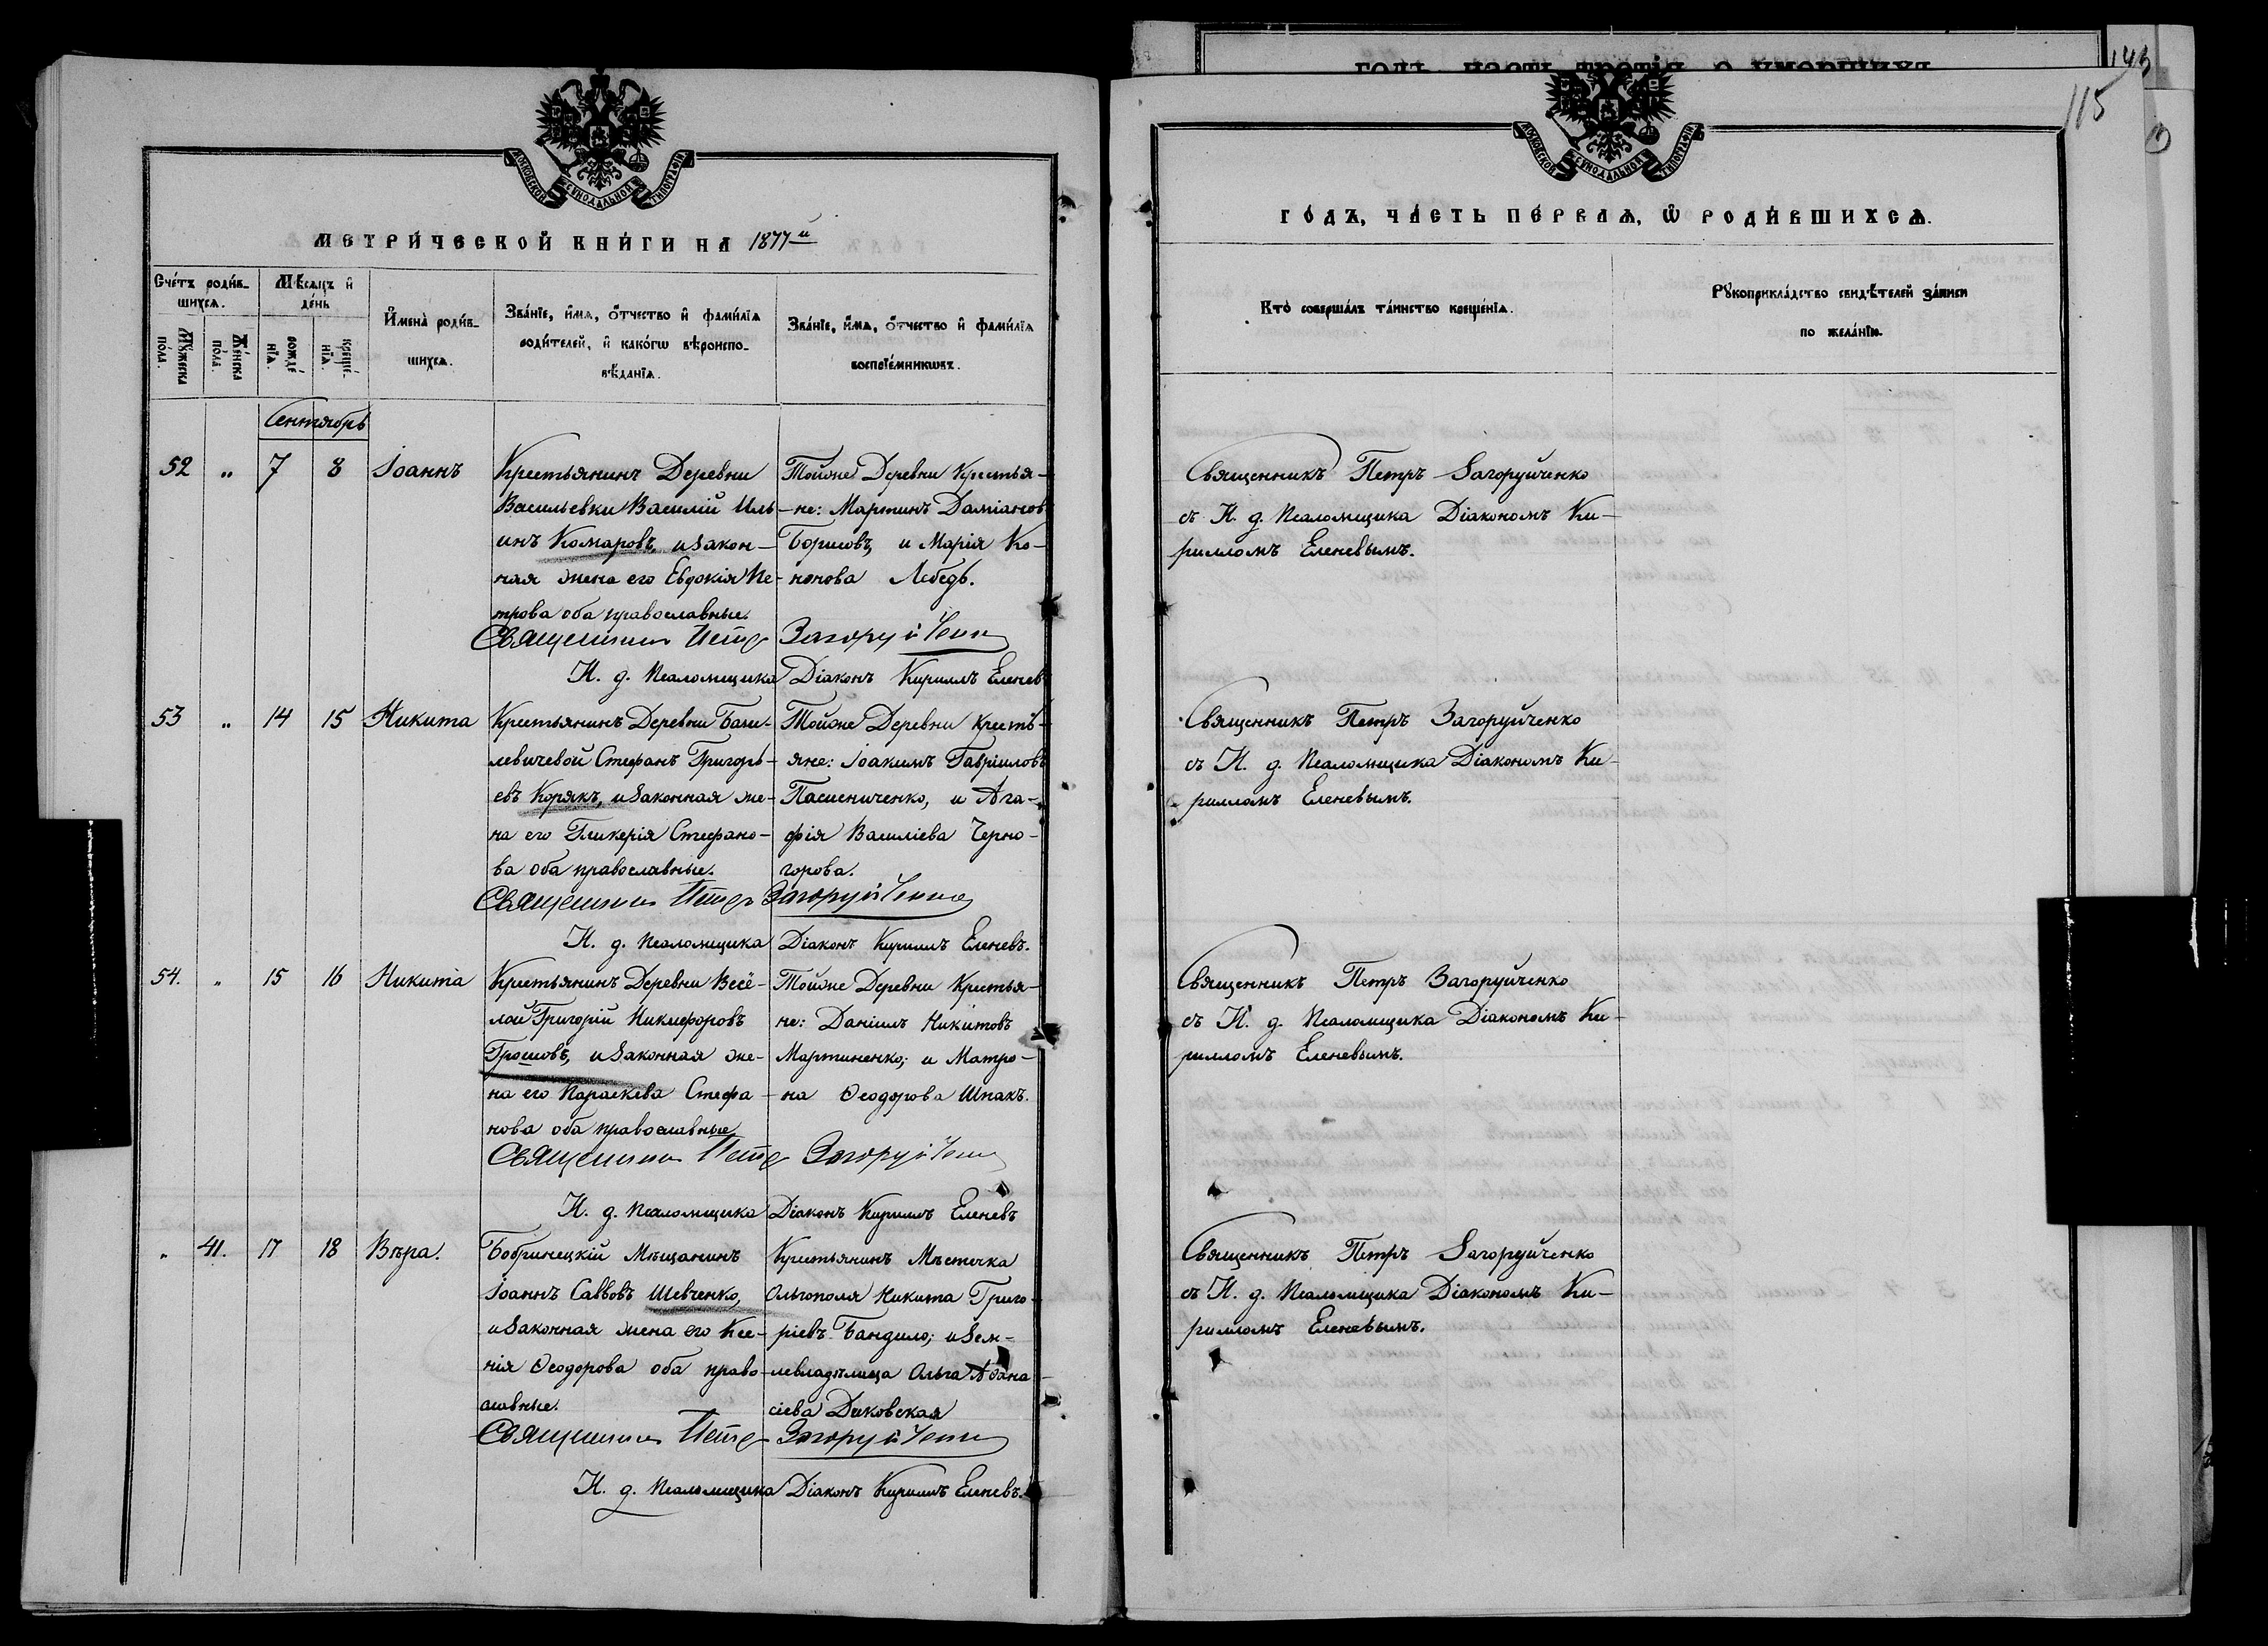 МОСКОВСКОЙ СѴНОДАЛЬНОЙ ТИПОГРАФІИ
МЕТРИ́ЧЕСКОЙ КНИ́ГИ НА 1877й
Сче́тъ роди́в-
шихся.
Мѣ́сяцъ и
де́нь
Му́жеска
по́ла.
Же́нска
по́ла.
рожде́
нїя.
креще́-
нїя.
И́мена̀ роди́в-
шихся.
Зва́нїе, и́мя, о́тчество и фами́лїя
роди́телей, и како́гѡ вѣроиспо-
вѣ́данїя.
Зва́нїе, и́мя, о́тчество и фами́лїя
воспрїе́мникѡвъ.
Сентябрь
52 „ 7 8 Іоаннъ
Крестьянинъ Деревни
Васильевки Василій Иль-
инъ Комаровъ, и закон-
ная жена его Евдокія Пе-
трова оба православные.
Тойже Деревни Крестья-
не: Мартинъ Даміановъ
Борисовъ, и Марія Ко-
нонова Лебедь.
Священникъ Петръ Загоруйченко
И. д. Псаломщика Діаконъ Кириллъ Еленевъ
53 „ 14 15 Никита
Крестьянинъ Деревни Бази-
левичевой Стефанъ Григорь-
евъ Корякъ, и законная же-
на его Гликерія Стефано-
ва оба православные.
Тойже Деревни Крестъ-
яне: Іоакимъ Гавріиловъ
Пасиениченко, и Ага-
фія Василіева Черно-
горова.
Священникъ Петръ Загоруйченко
И. д. Псаломщика Діаконъ Кириллъ Еленевъ.
54. „ 15 16 Никита
Крестьянинъ Деревни Весё-
лой Григорій Никифоровъ
Грошовъ, и законная же-
на его Параскева Стефа-
нова оба православные
Тойже Деревни Крестья-
не: Даніилъ Никитовъ
Мартиненко; и Матро-
на Ѳеодорова Шпакъ.
Священникъ Петръ Загоруйченко
И. д. Псаломщика Діаконъ Кириллъ Еленевъ
„ 41. 17 18 Вѣра.
Бобринецкій Мѣщанинъ
Іоаннъ Саввовъ Шевченко,
и законная жена его Ксе-
нія Ѳеодорова оба право-
славные.
Крестьянинъ Мѣстечка
Ольгополя Никита Григо-
ріевъ Бандило; и зем-
левладѣлица Ольга Аѳана-
сіева Диковская
Священникъ Петръ Загоруйченко
И. д. Псаломщика Діаконъ Кириллъ Еленевъ.
годъ, часть третія, о умершихъ
143
115
МОСКОВСКОЙ СѴНОДАЛЬНОЙ ТИПОГРАФІИ
ГО́ДЪ, ЧА́СТЬ ПЕ́РВАЯ, Ѡ РОДИ́ВШИХСЯ.
Кто̀ соверша́лъ та́инство креще́нїя.
Рукоприкла́дство свидѣ́телей за́писи
по жела́нїю.
Священникъ Петръ Загоруйченко
съ И. д. Псаломщика Діакономъ Ки-
рилломъ Еленевымъ.
Священникъ Петръ Загоруйченко
съ И. д. Псаломщика Діакономъ Ки-
рилломъ Еленевымъ.
Священникъ Петръ Загоруйченко
съ И. д. Псаломщика Діакономъ Ки-
рилломъ Еленевымъ.
Священникъ Петръ Загоруйченко
съ И. д. Псаломщика Діакономъ Ки-
рилломъ Еленевымъ.